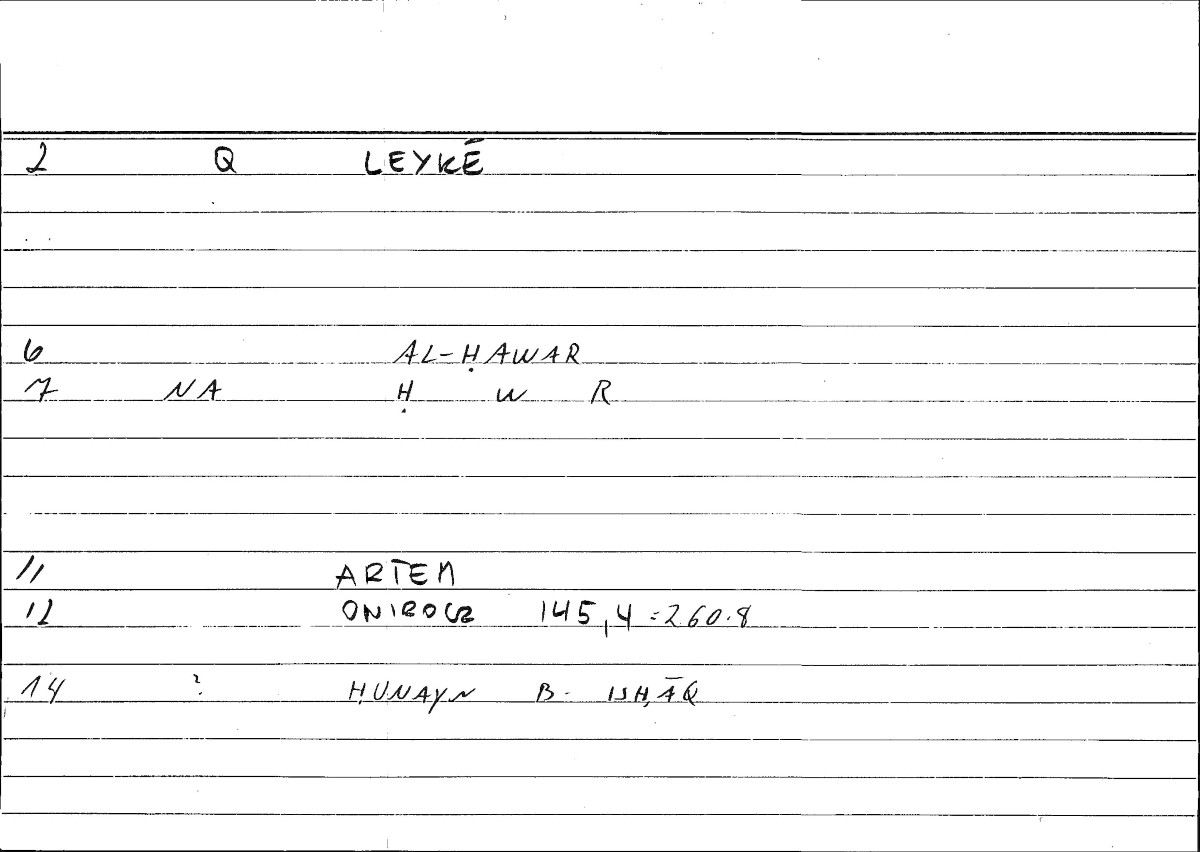 2 Q LEYKḖ
6 AL-ḤAWAR
7 NA Ḥ W R
11 ARTEM
12 ONIROCR 145,4 = 260.8
14 ? ḤUNAYN B. ISḤĀQ